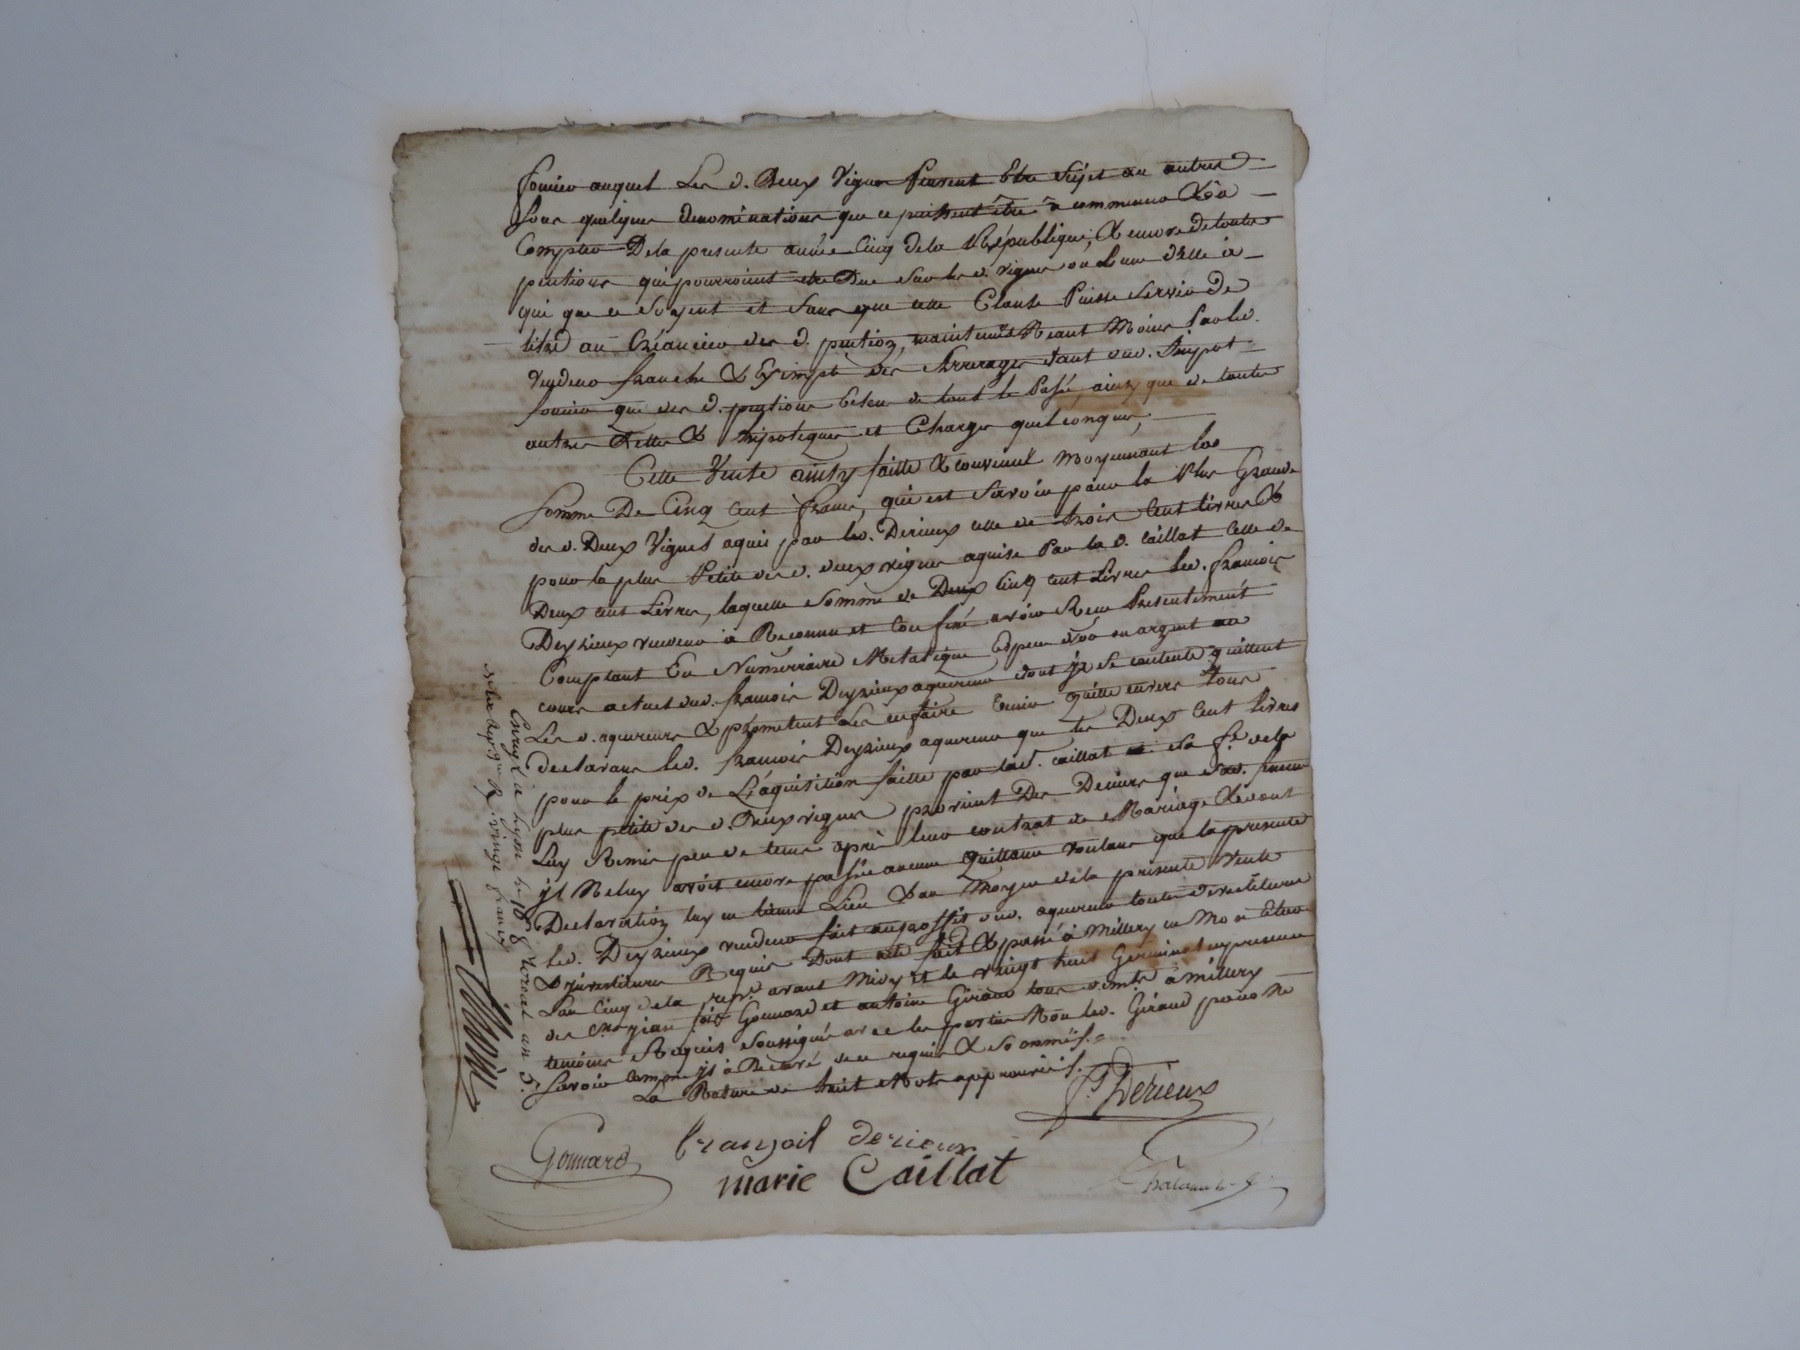 foncier auquel Les d. Deux Vignes Seroient Etre Sujet ou autres
sous quelques denominations que ce puissent être à commencer & à
Compter De la presente année Cinq de la République, & encore de toutes
pentions qui pourroient etre Due sur les d. vignes ou L'une d'Elle à
qui que ce soyent et sans que cette Clause Puisse Servir de
titre au Créancier des d. pention, maintenus Neant Moins Par led.
vendeur franche & Exempte des Arrerages tant dud. Impot
foncier que des d. pentions Celeu de tout le Passé, ainsy que de toutes
autres Dettes & hipoteques et Charges quelconques,
Cette Vente ainsy faitte & convenue Moyennant la
somme De Cinq Cent francs, qui est Savoir pour la Plus Grande
des d. Deux Vignes aquis par led. Derieux celle de trois Cent livres &
pour la plus Petite des d. deux vignes aquise Par la d. Caillat Celle de
Deux cent Livres, laquelle somme de Deux Cinq cent Livres led. francois
Deyrieux vendeur à Reconnu et Confessé avoir Reçu Presentement
Comptant En Numerraire Metalique Espece d'or ou argent au
cours actuel dud. francois Deyrieux aquereur dont il se contente quittent
Les d. aquereurs & promettent Les en faire tenir Quitte envers tous
declarans led. francois Deyrieux aquereur que les Deux Cent livres
pour le prix de L'aquisition faitte par lad. Caillat sa fe. de la
plus petite des d. Deux vignes provient Des Deniers que sad. femme
Luy Remis peu de tems après leur contrat de Mariage & dont
il Ne luy avoit encore passée aucune Quittance voulans que la presente
Declaration luy en tienne Lieu & au Moyen de la presente Vente
led. Deyrieux vendeur fait au proffit dud. aquereur toutes devestitures
& investitures Requis Dont acte fait & passé à Millery en Mon etude
L'an Cinq de la repe. avant Midy et le vingt huit Germinal en presence
des Cnoyian Gonnard et antoine Giraud tous demte. à Millery
temoins Requis Soussigné avec les parties Non led. Giraud pour Ne
Savoir comme il à Declaré de ce requis & Sommés.
La Rature de huit Mots approuvés.
P. Derieux
Gonnard
françois derieux
marie Caillat
Enregé. à Lyon le 18 floreal an 5.